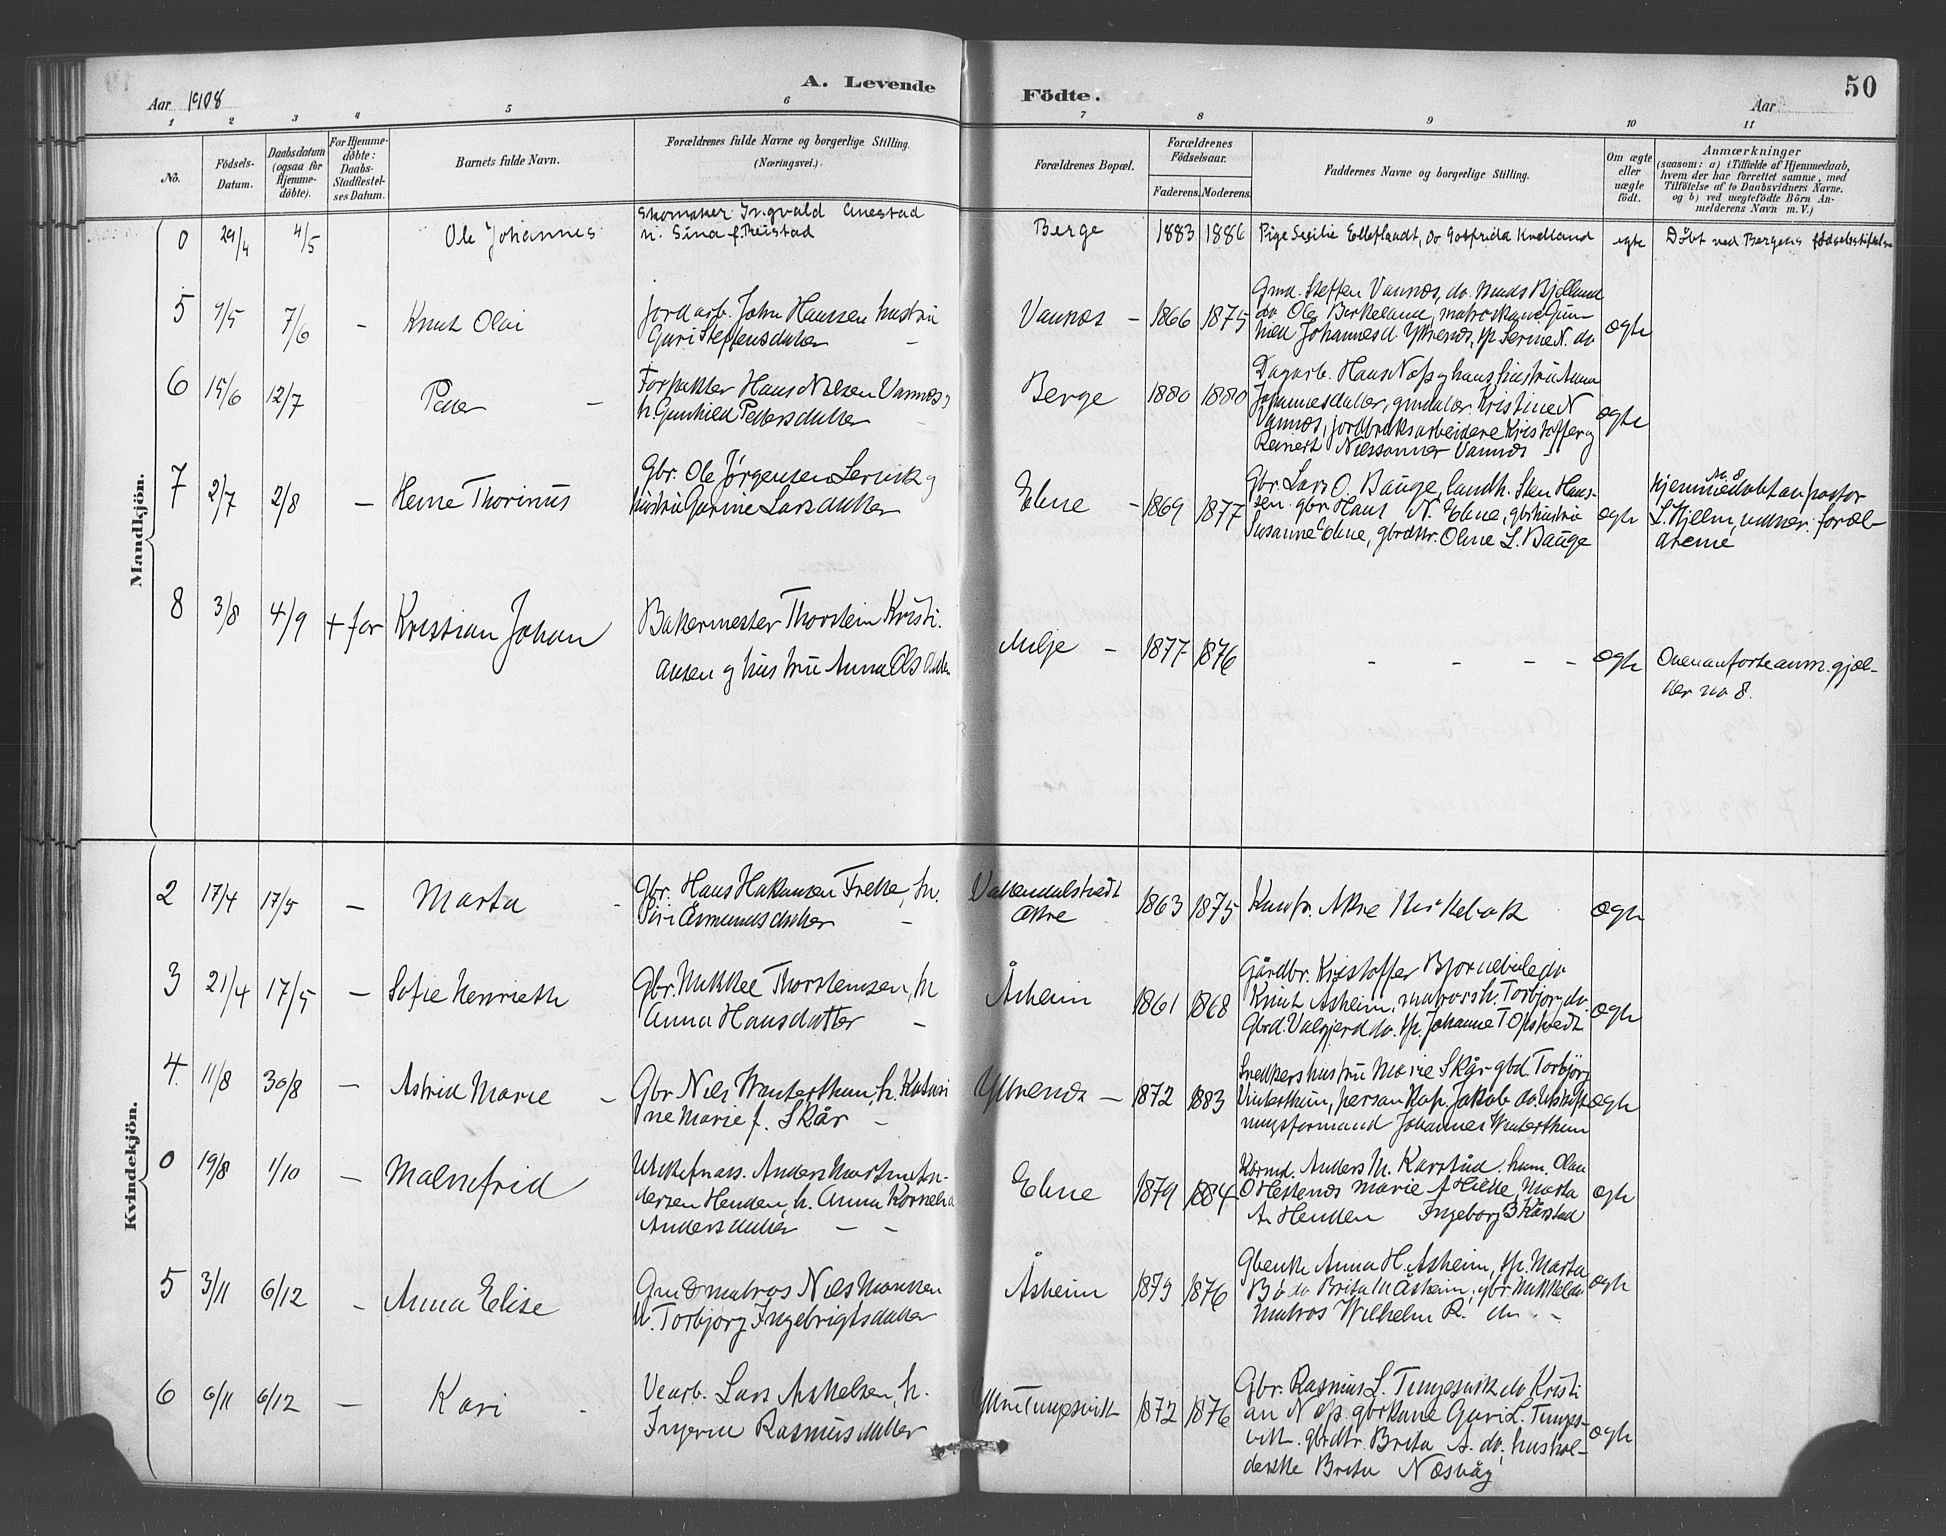 A. Levende Födte.
50
Aar 1908
Aar
1 2 3 4 5 6 7 8 9 10 11
No.
Födsels-
Datum.
Daabsdatum
(ogsaa for
Hjemme-
döbte).
For Hjemme-
döbte:
Daabs-
Stadfæstel-
ses Datum.
Barnets fulde Navn.
Forældrenes fulde Navne og borgerlige Stilling.
(Næringsvei.)
Forældrenes Bopæl.
Forældrenes
Födselsaar.
Faderens. Moderens.
Faddernes Navne og borgerlige Stilling.
Om ægte
eller
uægte
födt.
Anmærkninger
(saasom: a) i Tilfælde af Hjemmedaab,
hvem der har forrettet samme, med
Tilföielse af to Daabsvidners Navne.
og b) ved uægtefödte Börn An-
melderens Navn m. V.)
Mandkjön.
0 29/4 4/5 Ole Johannes
Skomaker Ingvald
h. Sina f.
Berge 1883 1886
Pige Sesilie do Gotfrida
egte
Døbt ved Bergens fødselsstiftelse
5 1/5 7/6 – Knut Olai
Jordarb. John Hanssen hustru
Guri Steffensdatter –
Vannes – 1866 1875
Gmd. Steffen Vannes, do. Mads Bjelland
do Ole Birkeland, matroskone Gun-
hild Johannesd. Ytrenes, sp. Serine N. do
ægte
6 15/6 12/7 Peder –
Forpakter Hans Nilsen Vannes,
h. Gunhild Pedersdatter
Berge 1880 1880
Dagarb. Hans Næss og hans hustru Anna
Johannesdatter, gmdatter Kristine N
Vannes, jordbruksarbeidere Kristoffer og
Reinert Nilssønner Vannes –
ægte
7 2/7 2/8 – Heine Thorinus
Gbr. Ole Jørgensen og
hustru Gurine Larsdatter
Elune – 1869 1877
Gbr. Lars O. Bauge, landh. Sten Hans-
sen. gbr. Hans N. Elune, gbrhustru
Susanne Elune, gbrdtr. Oline L. Bauge
ægte
No. 8
Hjemmedøbt av pastor
L. Hjelm, vidner: foræl-
drene
8 3/8 4/9 + før Kristian Johan
Bakermester Thorstein Kristi-
ansen og hustru Anna Olsdatter
Milje – 1877 1876
– – – –
ægte
Ovenanførte anm. gjæl-
der no 8.
Kvindekjön.
2 17/4 17/5 – Marta
Gbr. Hans Hakansen Frette, h.
Siri Åsmundsdatter –
Vattendalstvedt
Åkre
1863 1875
Åkre Kirkebok
ægte
3 21/4 17/5 – Sofie Henriette
Gbr. Mikkel Thorsteinsen, h
Anna Hansdatter –
Åsheim 1861 1868
Gårdbr. Kristoffer Bjørnebøle do
Knut Åsheim, matrosh. Torbjørg do.
Gbrd. Valgjerd do. sp. Johanne T Opstvedt
ægte
4. 11/8 30/8 – Astrid Marie –
Gbr Nils Winterthun, h. Katari
ne Marie f. Skår –
Ytrenes – 1872 1883
Snedkershustru Marie Skår gbd Torbjørg
Vinterthun, Jakob do. Utskift-
ningsformand Johannes Winterthun
ægte
0 19/8 1/10 – Malmfrid
Anders Martin An-
dersen Henden, h. Anna Kornelia
Andersdatter – –
Elune 1879 1884
Anders M. Karstad. hum. Olau
O Hestenes Marie A Hide, Marta
A. Henden Ingeborg B Karstad
ægte
5 3/11 6/12 – Anna Elise
Gmd & matros Nils Monssen
h. Torbjørg Ingebrigtsdatter
Åsheim 1879 1876
Gbenke Anna H. Åsheim, sp. Marta
Bø do Brita M Åsheim, gbr. Mikkel do
matros Wilhelm R. do –
ægte
6 6/11 6/12 – Kari
Vearb. Lars Askelsen, h.
Ingerin Rasmusdatter
Ytre Tungesvik 1872 1876
Gbr. Rasmus L. Tungesvik do Kristi
an Næss. gbrkone Guri L. Tunges-
vik. gbrdtr. Brita A. do, hushol-
derske Brita Næsvåg
ægte